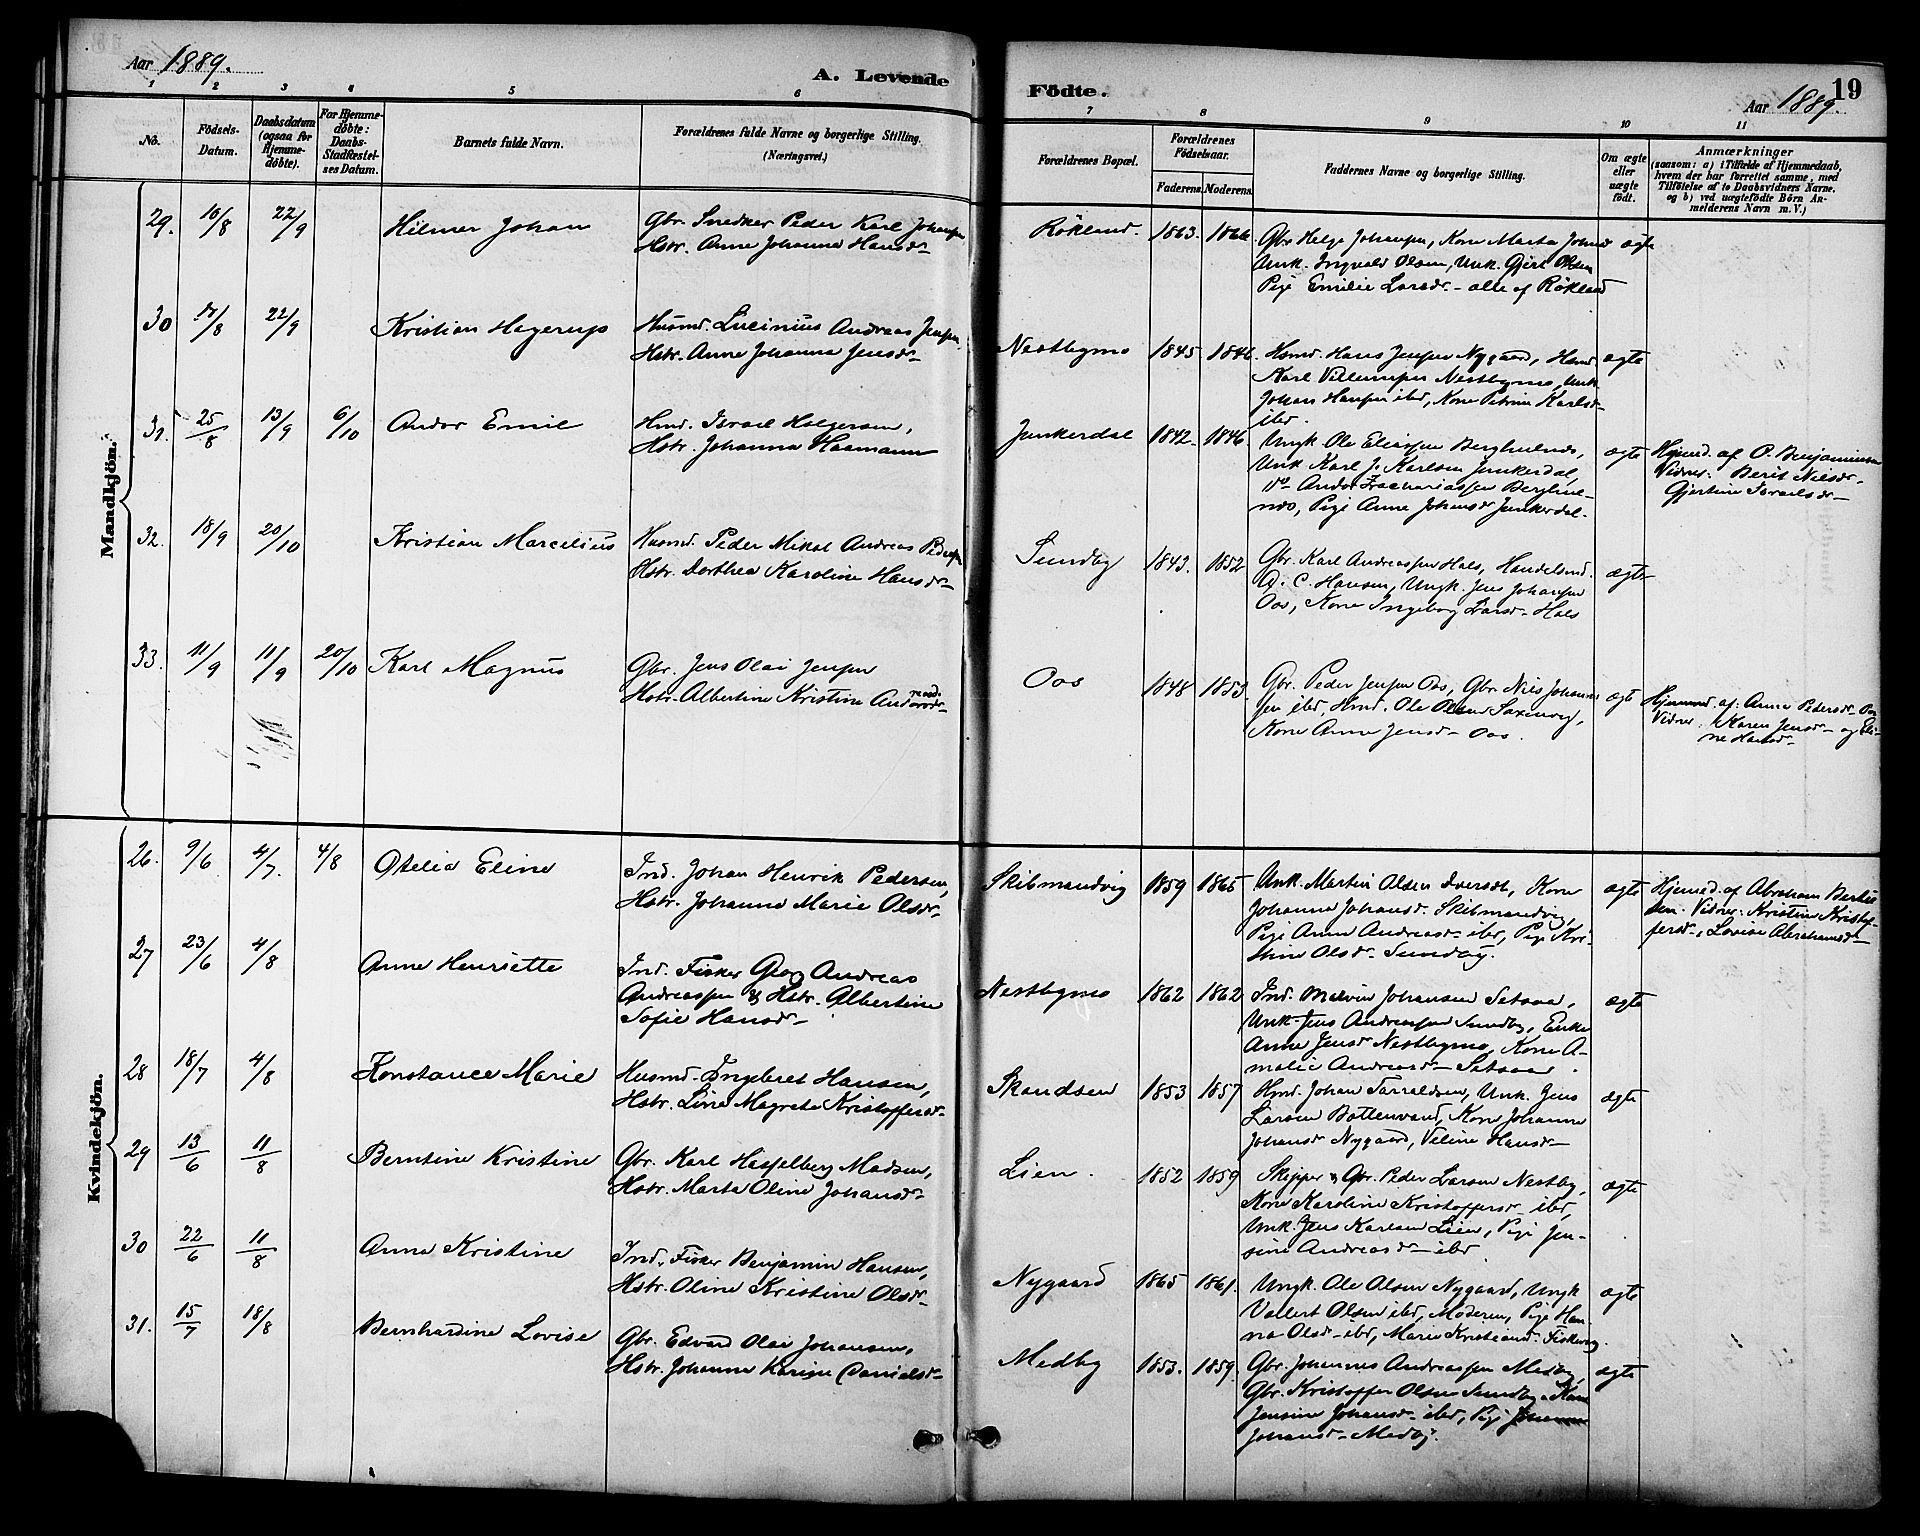 Aar 1889.
A. Levende
Födte.
19
Aar 1889.
1 2 3 4 5 6 7 8 9 10 11
No.
Födsels-
Datum.
Daabsdatum
(ogsaa for
Hjemme-
døbte).
For Hjemme-
døbte:
Daabs-
Stadfæstel-
ses Datum.
Barnets fulde Navn.
Forældrenes fulde Navne og borgerlige Stilling.
(Næringsvei.)
Forældrenes Bopæl.
Forældrenes
Födselsaar.
Faderens. Moderens.
Faddernes Navne og borgerlige Stilling.
Om ægte
eller
uægte
födt.
Anmærkninger
(saasom: a) i Tilfælde af Hjemmedaab,
hvem der har forrettet samme, med
Tilföielse af to Daabsvidners Navne.
og b) ved uægtefödte Börn An-
melderens Navn m. V.)
Mandkjön.
29. 16/8 22/9 Hilmer Johan
Gbr. Snedker Peder Karl Johansen
Hstr. Anne Johanna Hansdr
Rökland. 1863. 1866.
Gbr Helge Johansen, Kone Marta Johnsd
Unk. Ingvald Olsen, Unk. Gjert Olsen
Pige Emilie Larsdr - alle af Rökland
ægte
30 17/8 22/9 Kristian Hagerup
Husmd. Lucinius Andreas Jensen.
Hstr. Anne Johanna Jensdr
Nestbymo 1845 1846.
Hsmd. Hans Jensen Nygaard, Hsmd.
Karl Villumsen Nestbymo, Unk
Johan Hansen ibd, Kone Petrine Karlsdr
ibd.
ægte
31. 25/8 13/9 6/10 Andor Emil
Hmd. Israel Holgersen,
Hstr. Johanna Hasmann
Junkerdal 1842. 1846.
Ungk. Ole Eliassen Berghulnes,
Unk Karl J. Karlsen Junkerdal,
do Andor Zachariassen Berghul-
nes, Pige Anne Johansdr Junkerdal.
ægte
Hjemd. af O. Benjaminsen
Vidner: Berit Nilsdr
Gjertine Israelsdr
32. 18/9 20/10 Kristian Marcelius
Husmd. Peder Mikal Andreas Pedersen
Hstr. Dorthea Karoline Hansdr
Sundby 1843. 1852
Gbr. Karl Andreassen Hals, Handelsmd.
A. C. Hansen, Ungk. Jens Johansen
Oos, Kone Ingeborg Larsdr Hals
ægte
33. 11/9 11/9 20/10 Karl Magnus
Gbr. Jens Olai Jensen
Hstr. Albertine Kristine
Oos 1848 1853.
Gbr. Peder Jensen Oos, Gbr Nils Johan-
sen ibd, Hmd. Ole Saxenvig,
Kone Anne Jensdr Oos.
ægte
Hjemmd. af: Anna Pedersdr Oos
Vidner: Karen Jensdr og Eli-
ne Hansdr
Kvindekjön.
26. 9/6 4/7. 4/8 Otelia Eline
Ind. Johan Henrik Pedersen,
Hstr. Johanna Marie Olsdr
Skibmandvig 1859 1865
Unk. Martin Olsen, Kone
Johanna Johansdr Skibmandvig,
Pige Anne Andreasdr ibd, Pige Kri-
stine Olsdr Sundby.
ægte
Hjemed. af Abraham
Vidner: Kristine
Lovise Abrahamsdr
27 23/6 4/8 Anne Henriette
Ind. Fisker Georg Andreas
Andreassen & Hstr. Albertine
Sofie Hansdr
Nestbymo 1862 1862
Ind. Malvin Johansen Setsaa,
Unk. Jens Andreassen Sundby, Enke
Anne Jensdr Nestbymo, Kone A-
malie Andreasdr Setsaa.
ægte
28 18/7 4/8 Konstance Marie
Husmd. Ingebret Hansen,
Hstr. Line Magreta Kristoffersdr
Skandsen 1853 1857
Hmd. Johan Tarraldsen, Unk. Jens
Larsen Bottenvand, Kone Johanne
Johansdr Nygaard, Veline Hansdr
ægte
29 13/6 11/8 Berntine Kristine
Gbr. Karl Hesselberg Madsen,
Hstr. Marta Oline Johansdr
Lien. 1852 1859
Skipper & Gbr. Peder Larsen Nestby,
Kone Karoline Kristoffersdr ibd,
Unk. Jens Karlsen Lien, Pige Jen-
sine Andreasdr ibd
ægte
30 22/6 11/8 Anne Kristine
Ind. Fisker Benjamin Hansen,
Hstr. Oline Kristine Olsdr
Nygaard 1865 1861.
Ungk. Ole Olsen Nygaard, Ungk
Vallert Olsen ibd, Moderen, Pige Han-
na Olsdr ibd, Marie Kristiansd. Fiskvaag.
ægte
31. 15/7 18/8 Bernhardine Lovise
Gbr. Edvard Olai Johansen,
Hstr. Johanna Karine Danielsdr
Medby 1853. 1859.
Gbr. Johannes Andreassen Medby,
Gbr. Kristoffer Olsen Sundby, Kone
Jensine Johansdr ibd, Pige
Johansdr Medby.
ægte